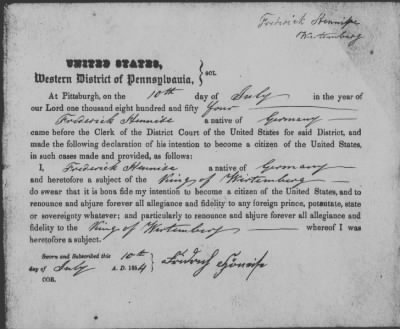 Frederick Hennise
Wirtemberg
UNITED STATES,
Western District of Pennsylvania, } SCT.
At Pittsburgh, on the 10th day of July in the year of
our Lord one thousand eight hundred and fifty Four
Frederick Hennise a native of Germany
came before the Clerk of the District Court of the United States for said District, and
made the following declaration of his intention to become a citizen of the United States,
in such cases made and provided, as follows:
I, Frederick Hennise a native of Germany
and heretofore a subject of the King of Wirtemberg
do swear that it is bona fide my intention to become a citizen of the United States, and to
renounce and abjure forever all allegiance and fidelity to any foreign prince, potentate, state
or sovereignty whatever; and particularly to renounce and abjure forever all allegiance and
fidelity to the King of Wirtemberg whereof I was
heretofore a subject.
Sworn and Subscribed this 10th
day of July A. D. 1854
COR.